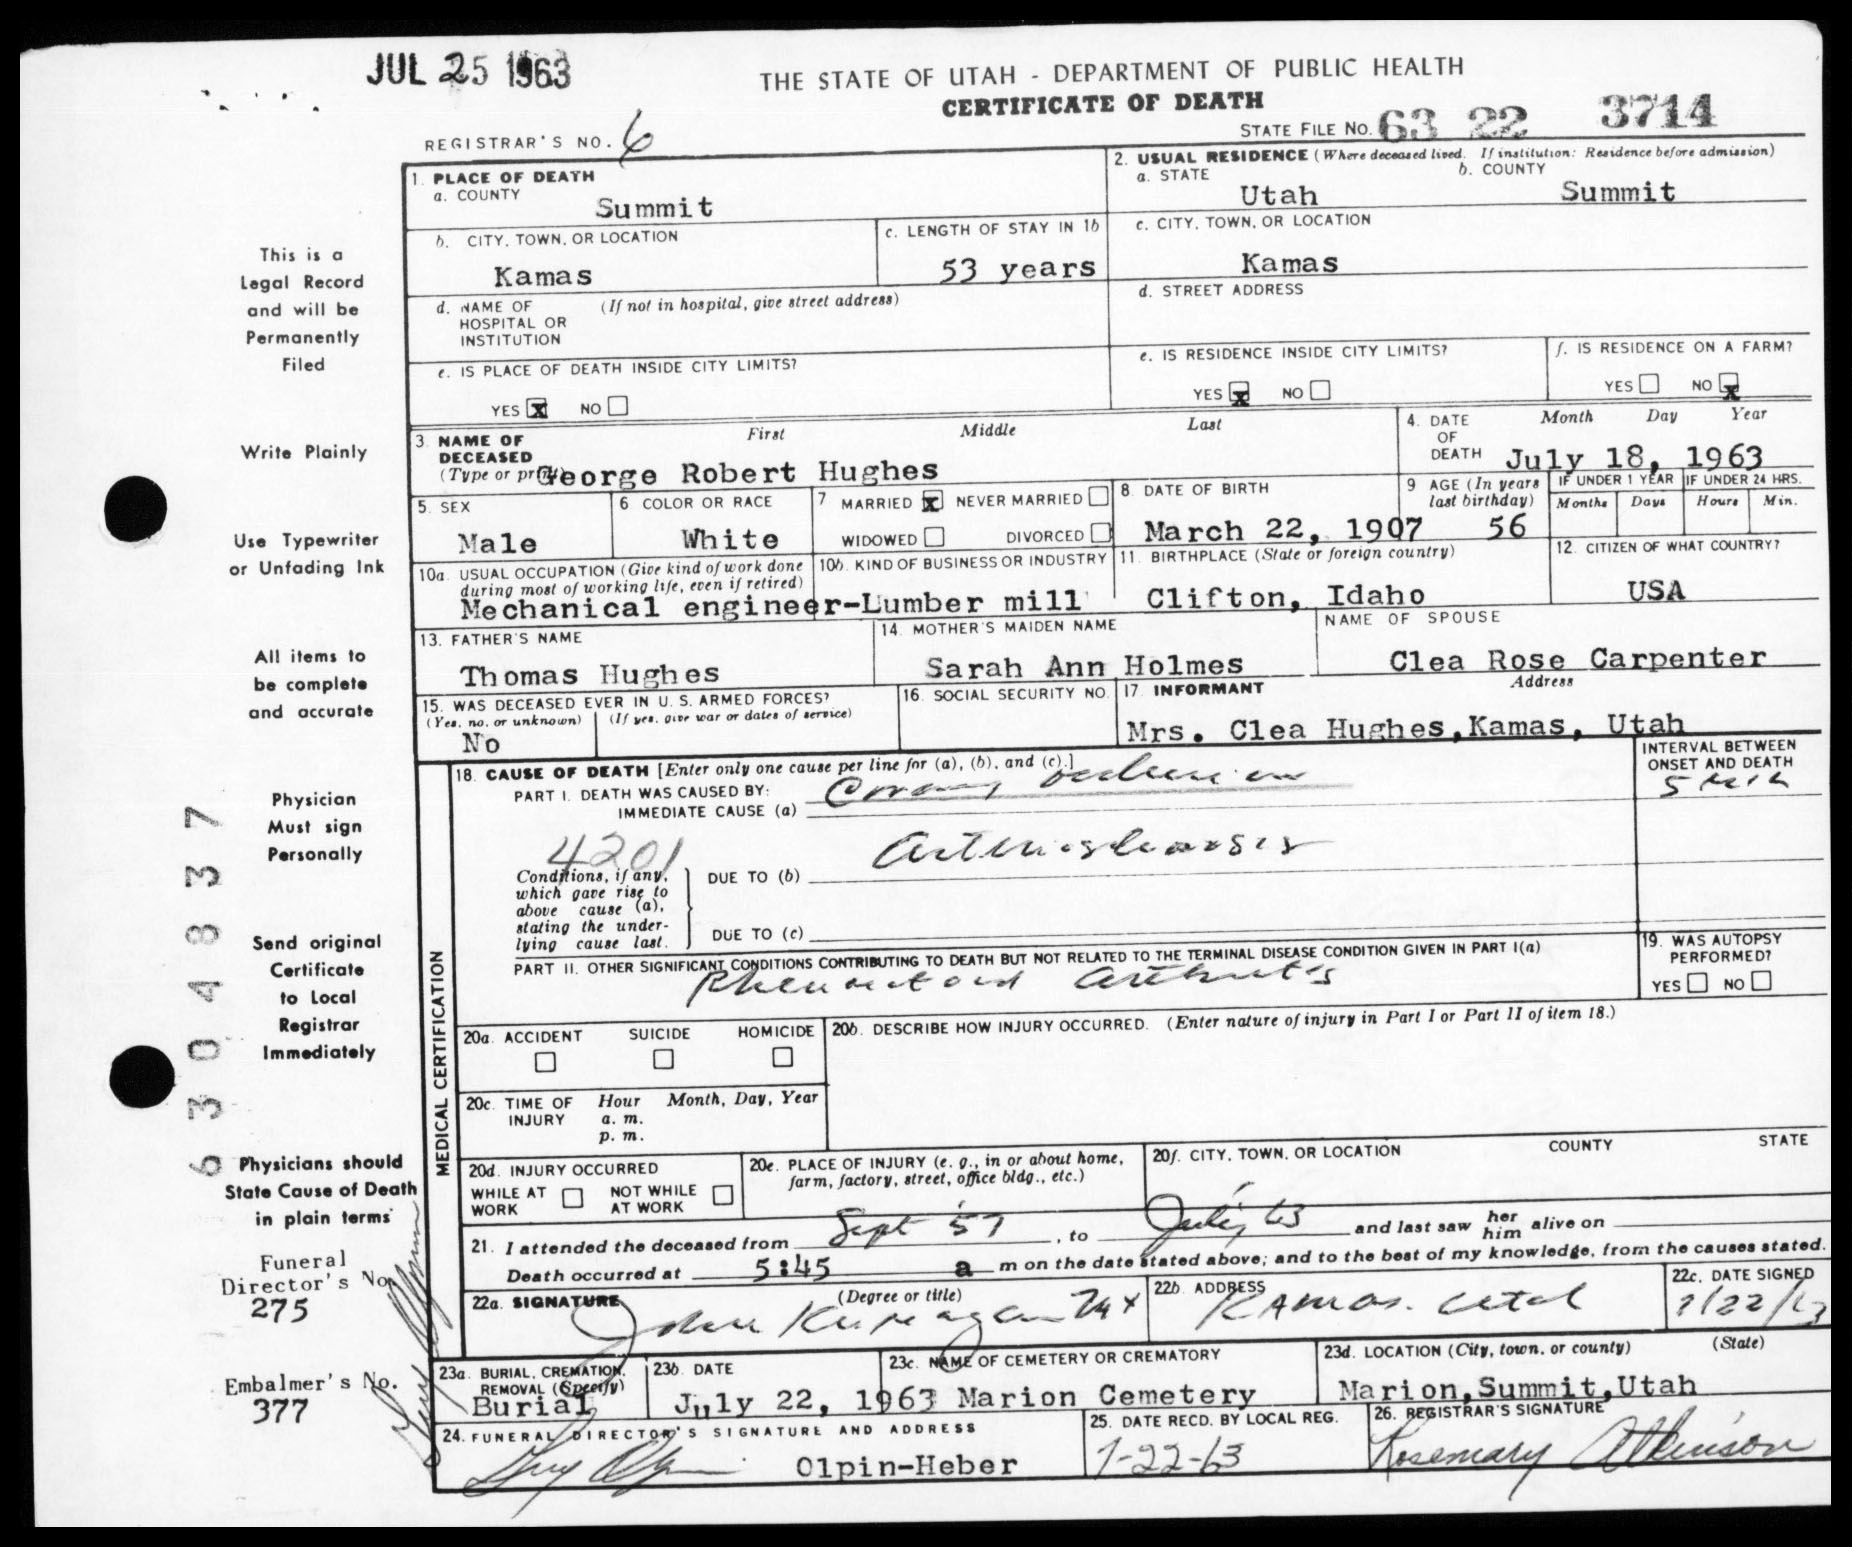 JUL 25 1963
THE STATE OF UTAH - DEPARTMENT OF PUBLIC HEALTH
CERTIFICATE OF DEATH
REGISTRAR'S NO. 6
STATE FILE NO. 63 22 3714
1. PLACE OF DEATH
a. COUNTY
Summit
2. USUAL RESIDENCE (Where deceased lived. If institution: Residence before admission)
a. STATE
Utah
b. COUNTY
Summit
b. CITY, TOWN, OR LOCATION
Kamas
c. LENGTH OF STAY IN 1b
53 years
c. CITY, TOWN, OR LOCATION
Kamas
d. NAME OF HOSPITAL OR INSTITUTION
(If not in hospital, give street address)
d. STREET ADDRESS
e. IS PLACE OF DEATH INSIDE CITY LIMITS?
YES x NO
e. IS RESIDENCE INSIDE CITY LIMITS?
YES x NO
f. IS RESIDENCE ON A FARM?
YES NO x
3. NAME OF DECEASED
(Type or print)
First Middle Last
George Robert Hughes
4. DATE OF DEATH
Month Day Year
July 18, 1963
5. SEX
Male
6 COLOR OR RACE
White
7 MARRIED x NEVER MARRIED
WIDOWED DIVORCED
8. DATE OF BIRTH
March 22, 1907
9 AGE (In years last birthday)
56
IF UNDER 1 YEAR
Months Days
IF UNDER 24 HRS.
Hours Min.
10a. USUAL OCCUPATION (Give kind of work done during most of working life, even if retired)
10b. KIND OF BUSINESS OR INDUSTRY
Mechanical engineer-Lumber mill
11. BIRTHPLACE (State or foreign country)
Clifton, Idaho
12. CITIZEN OF WHAT COUNTRY?
USA
13. FATHER'S NAME
Thomas Hughes
14. MOTHER'S MAIDEN NAME
Sarah Ann Holmes
NAME OF SPOUSE
Clea Rose Carpenter
15. WAS DECEASED EVER IN U. S. ARMED FORCES?
(Yes, no, or unknown) (If yes, give war or dates of service)
No
16. SOCIAL SECURITY NO.
17. INFORMANT Address
Mrs. Clea Hughes,Kamas, Utah
MEDICAL CERTIFICATION
18. CAUSE OF DEATH [Enter only one cause per line for (a), (b), and (c).]
PART I. DEATH WAS CAUSED BY:
IMMEDIATE CAUSE (a) Coronary occlusion
INTERVAL BETWEEN ONSET AND DEATH
5 min
4201
Conditions, if any, which gave rise to above cause (a), stating the underlying cause last.
DUE TO (b) Arteriosclerosis
DUE TO (c)
PART II. OTHER SIGNIFICANT CONDITIONS CONTRIBUTING TO DEATH BUT NOT RELATED TO THE TERMINAL DISEASE CONDITION GIVEN IN PART I(a)
Rheumatoid arthritis
19. WAS AUTOPSY PERFORMED?
YES NO
20a. ACCIDENT SUICIDE HOMICIDE
20b. DESCRIBE HOW INJURY OCCURRED. (Enter nature of injury in Part I or Part II of item 18.)
20c. TIME OF INJURY
Hour Month, Day, Year
a. m.
p. m.
20d. INJURY OCCURRED
WHILE AT WORK NOT WHILE AT WORK
20e. PLACE OF INJURY (e. g., in or about home, farm, factory, street, office bldg., etc.)
20f. CITY, TOWN, OR LOCATION COUNTY STATE
21. I attended the deceased from Sept '57, to July 63 and last saw her him alive on
Death occurred at 5:45 a m on the date stated above; and to the best of my knowledge, from the causes stated.
22a. SIGNATURE (Degree or title)
John
22b. ADDRESS
Kamas. Utah
22c. DATE SIGNED
7/22/63
23a. BURIAL, CREMATION, REMOVAL (Specify)
Burial
23b. DATE
July 22, 1963
23c. NAME OF CEMETERY OR CREMATORY
Marion Cemetery
23d. LOCATION (City, town, or county) (State)
Marion,Summit,Utah
24. FUNERAL DIRECTOR'S SIGNATURE AND ADDRESS
Guy Olpin Olpin-Heber
25. DATE RECD. BY LOCAL REG.
7-22-63
26. REGISTRAR'S SIGNATURE
Rosemary Atkinson
This is a
Legal Record
and will be
Permanently
Filed
Write Plainly
Use Typewriter
or Unfading Ink
All items to
be complete
and accurate
Physician
Must sign
Personally
Send original
Certificate
to Local
Registrar
Immediately
Physicians should
State Cause of Death
in plain terms
Funeral
Director's No.
275
Embalmer's No.
377
Guy Olpin
6304837